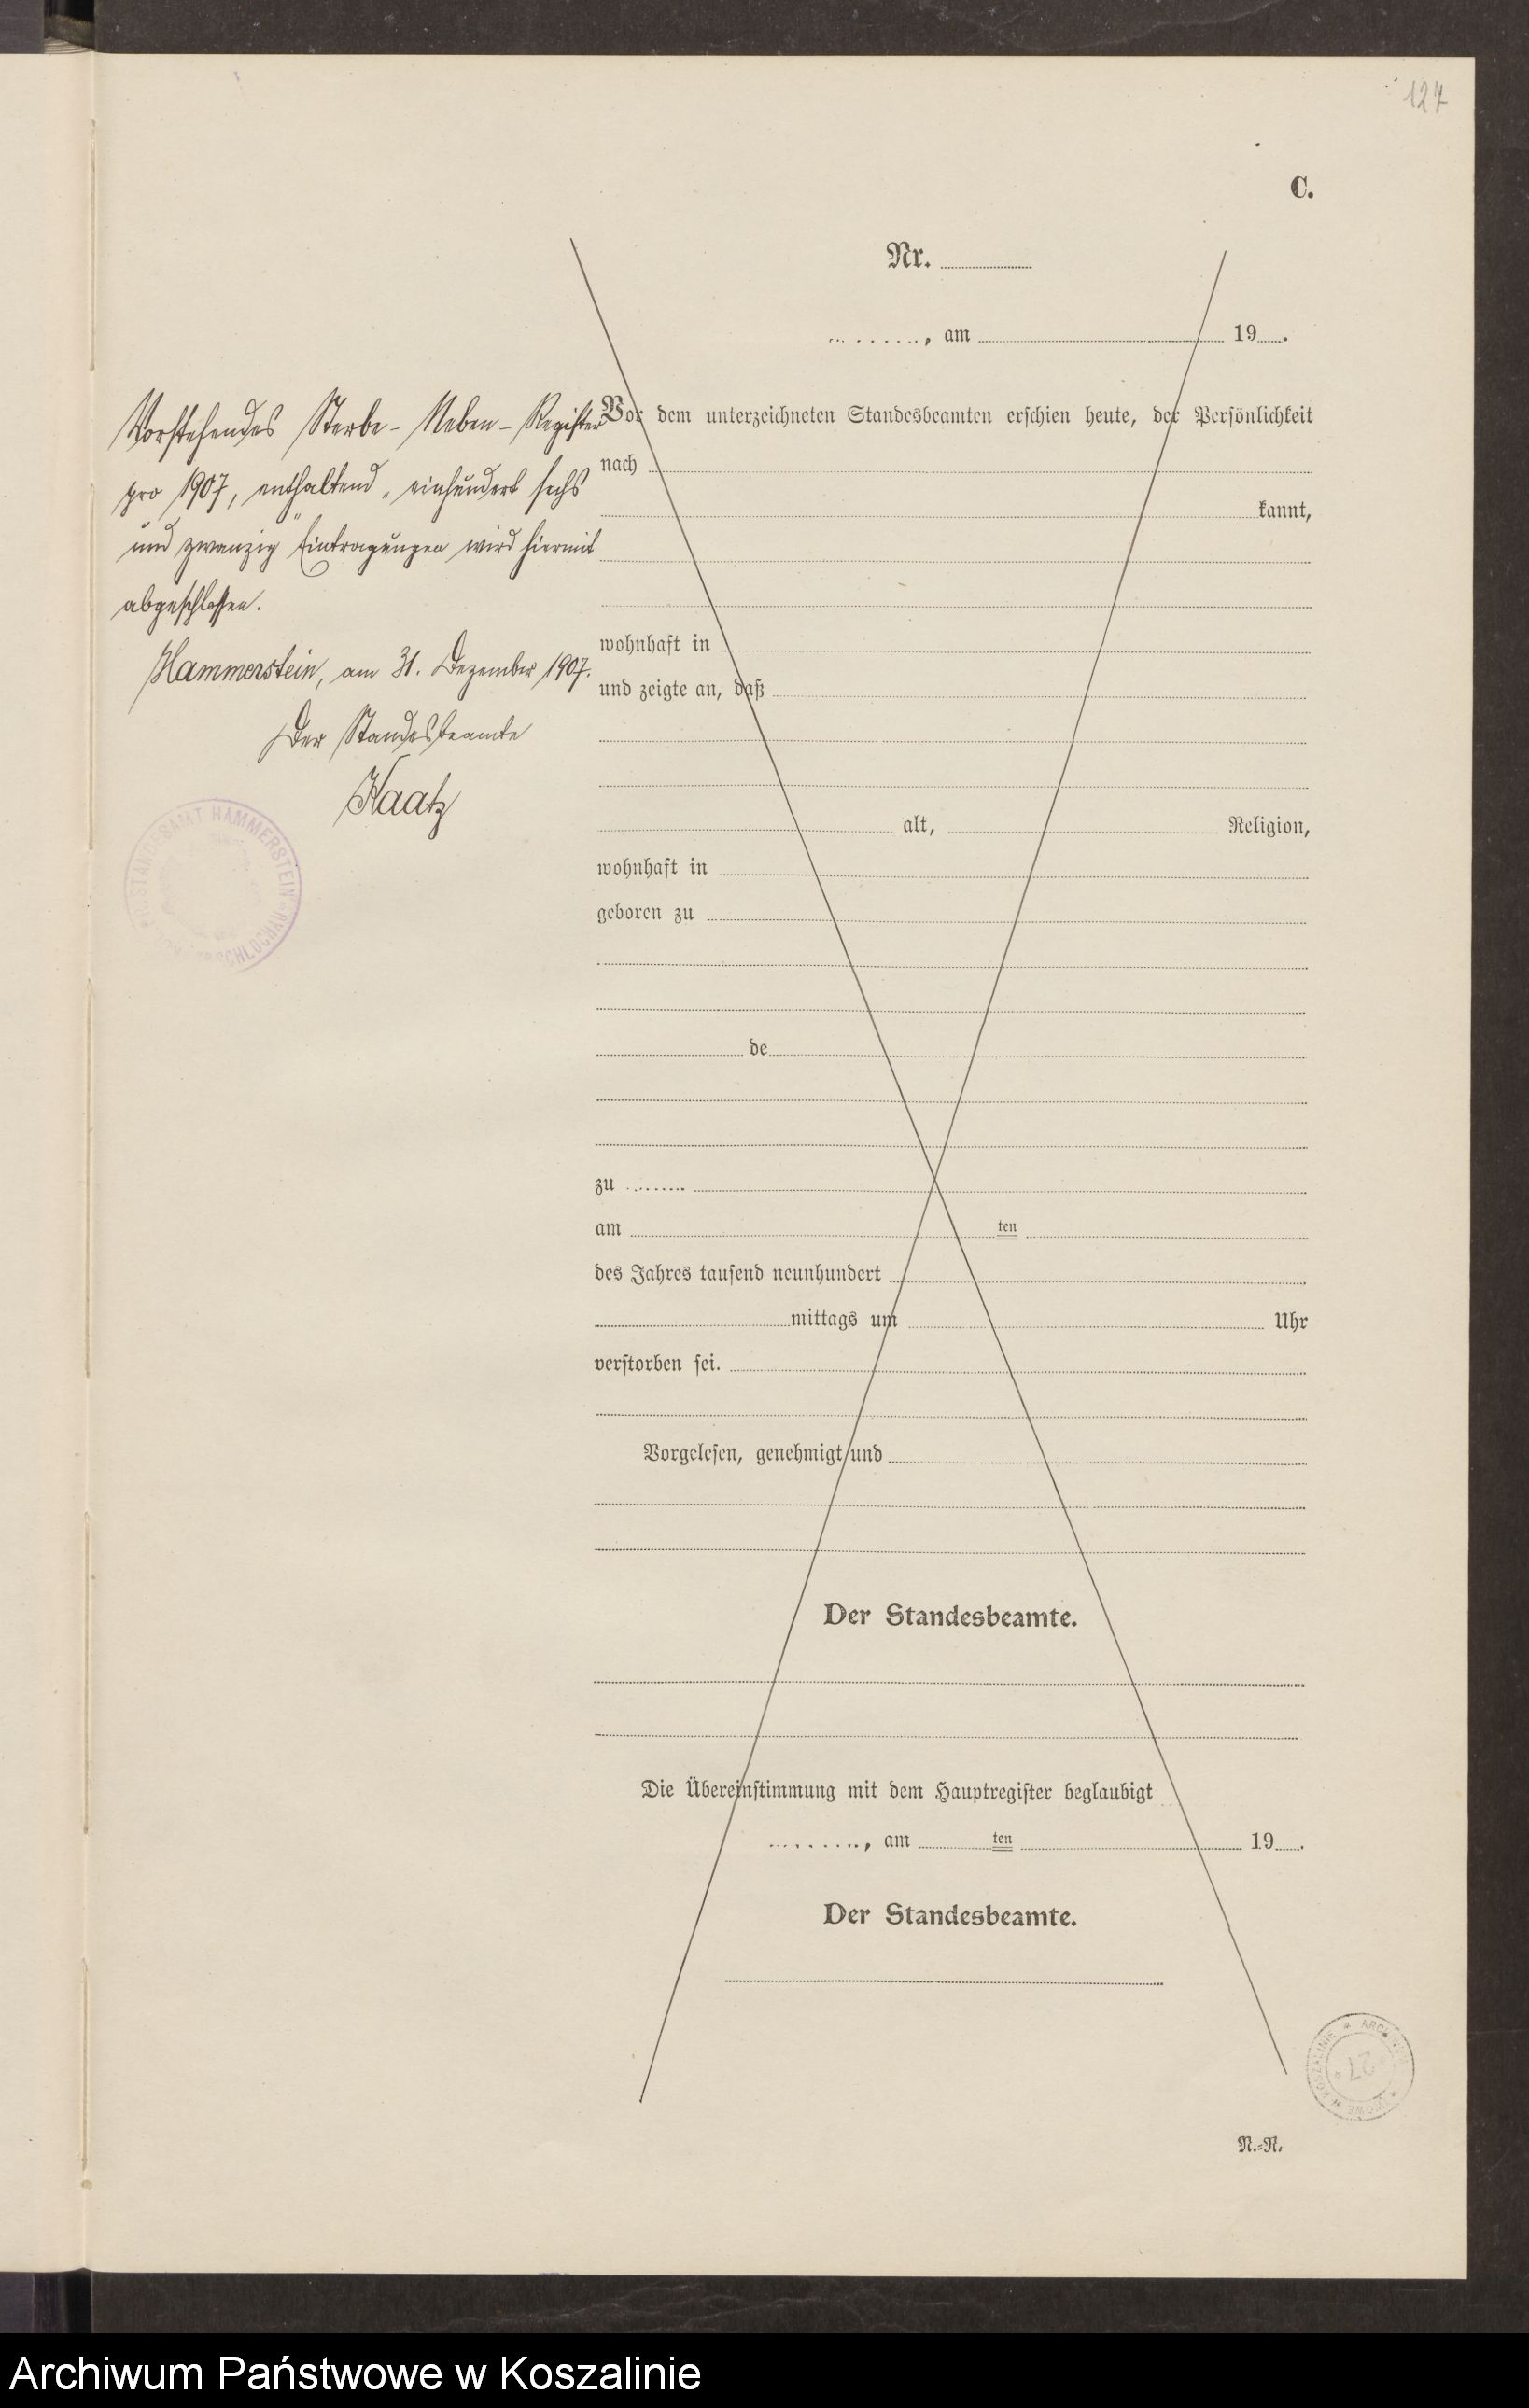 127
C.
Nr.
, am 19 .
Vorstehendes Sterbe-Neben-Register
pro 1907, enthaltend „einhundert sechs
und zwanzig" Eintragungen wird hiermit
abgeschlossen.
Hammerstein, am 31. Dezember 1907.
Der Standesbeamte
Kaatz
STANDESAMT HAMMERSTEIN SCHLOCHAU
Vor dem unterzeichneten Standesbeamten erschien heute, der Persönlichkeit
nach
kannt,
wohnhaft in
und zeigte an, daß
alt, Religion,
wohnhaft in
geboren zu
de
zu
am ten
des Jahres tausend neunhundert
mittags um Uhr
verstorben sei.
Vorgelesen, genehmigt und
Der Standesbeamte.
Die Übereinstimmung mit dem Hauptregister beglaubigt
, am ten 19 .
Der Standesbeamte.
27
N.-N.
Archiwum Państwowe w Koszalinie